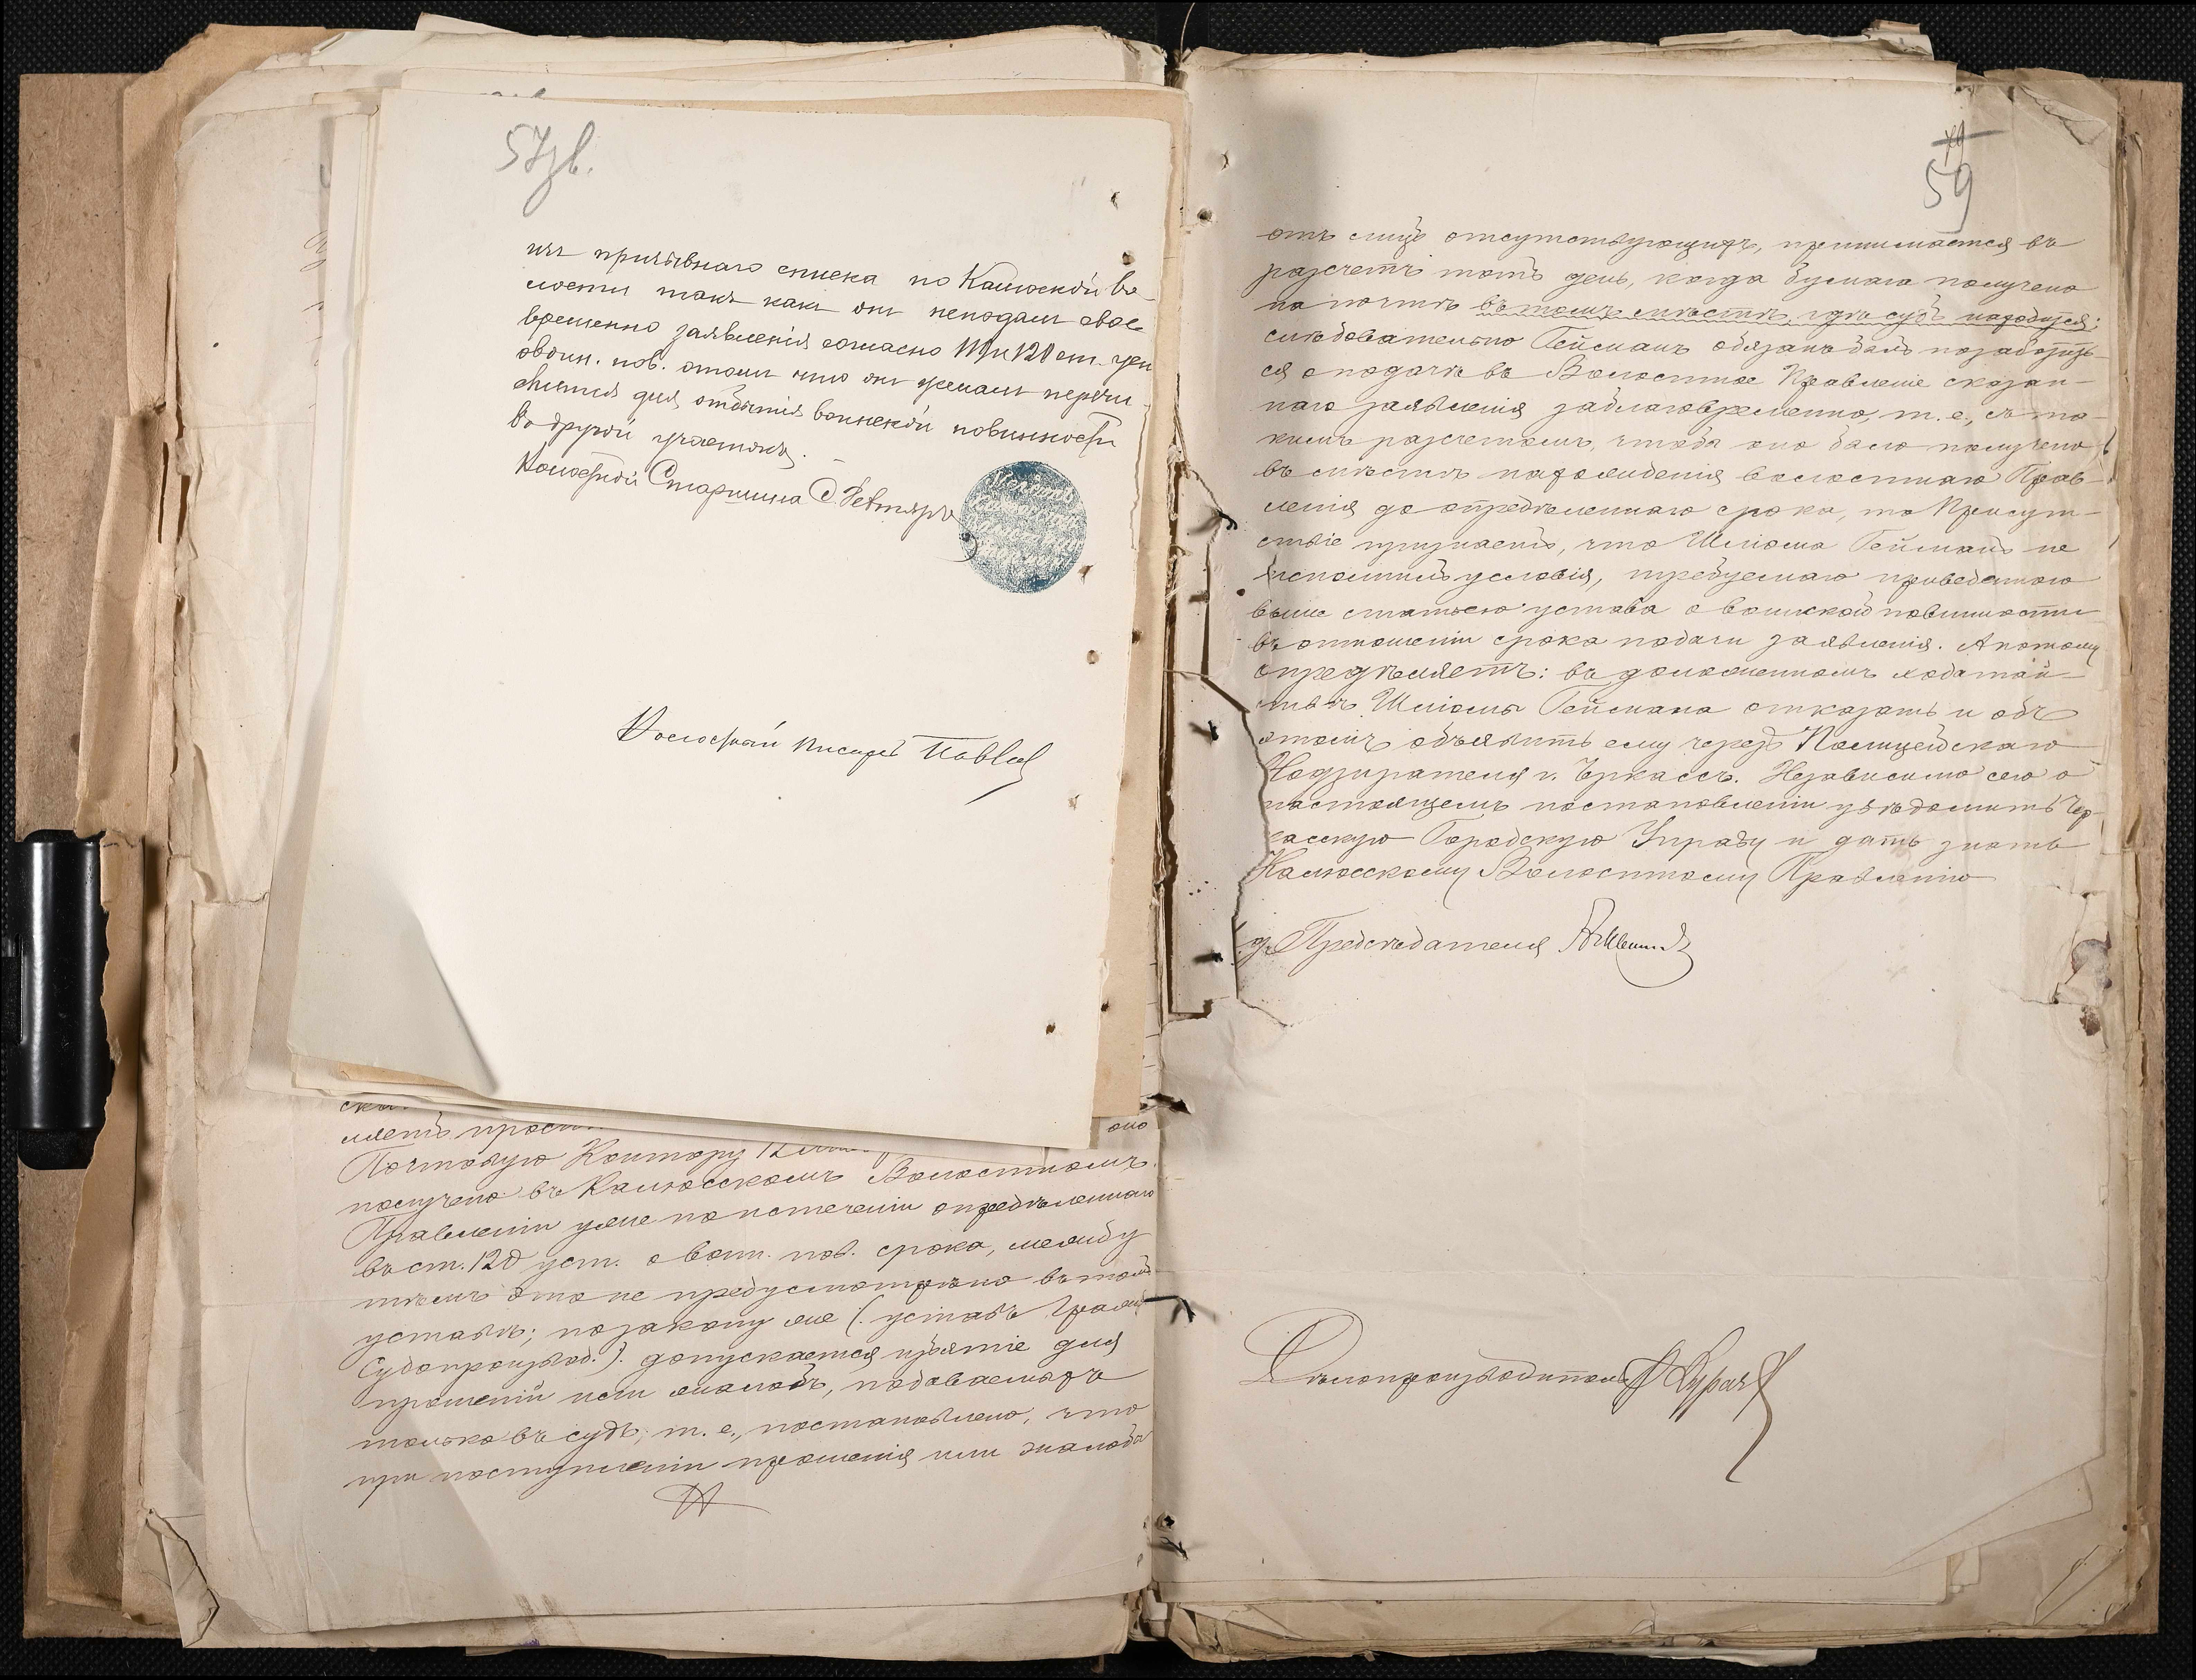 57зв.
изъ призывнаго списка по Калюской во-
лости такъ какъ онъ неподалъ свое
временно заявленія согласно 119 и 120 ст. уст
овоин. пов. отомъ что онъ желаетъ перечи-
слится для отбытія воинской повинности
въ другой участокъ.
Волостной Старшина С.
Волостной Писарь
оно
ляетъ
Почтовую Контору
получено въ Калюсскомъ Волостномъ
Правленіи уже по истеченіи опредѣленнаго
въ ст. 120 уст. о воин. пов. срока, между
тѣмъ это не предусмотрѣно въ томъ
уставѣ; по закону же (уставъ Гражд.
Судопроизвод.). допускается изъятіе для
прошеній или жалобъ, подаваемыхъ
только въ судъ, т. е., постановлено, что
при поступленіи прошенія или жалобы
59
отъ лицъ отсутствующихъ, принимается въ
разсчетъ тотъ день, когда бумага получена
на почтѣ въ томъ мѣстѣ, гдѣ судъ находится;
слѣдовательно Гейсманъ обязанъ былъ позаботить-
ся о подачѣ въ Волостное Правленіе сказан-
наго заявленія заблаговременно, т. е., съ та-
кимъ разсчетомъ, чтобы оно было получено
въ мѣстѣ нахожденія волостнаго Прав-
ленія до опредѣленнаго срока, то Присут-
ствіе признаетъ, что Шліома Гейсманъ не
исполнилъ условія, требуемаго приведенною
выше статьею устава о воинской повинности
въ отношеніи срока подачи заявленія. А потому
опредѣляетъ: въ доложенномъ ходатай-
ствѣ Шліомы Гейсмана отказать и объ
этомъ объявить ему чрезъ Полицейскаго
Надзирателя г. Черкассъ. Независимо сего о
настоящемъ постановленіи увѣдомить Чер-
касскую Городскую Управу и дать знать
Калюсскому Волостному Правленію
Предсѣдателя
Дѣлопроизводитель